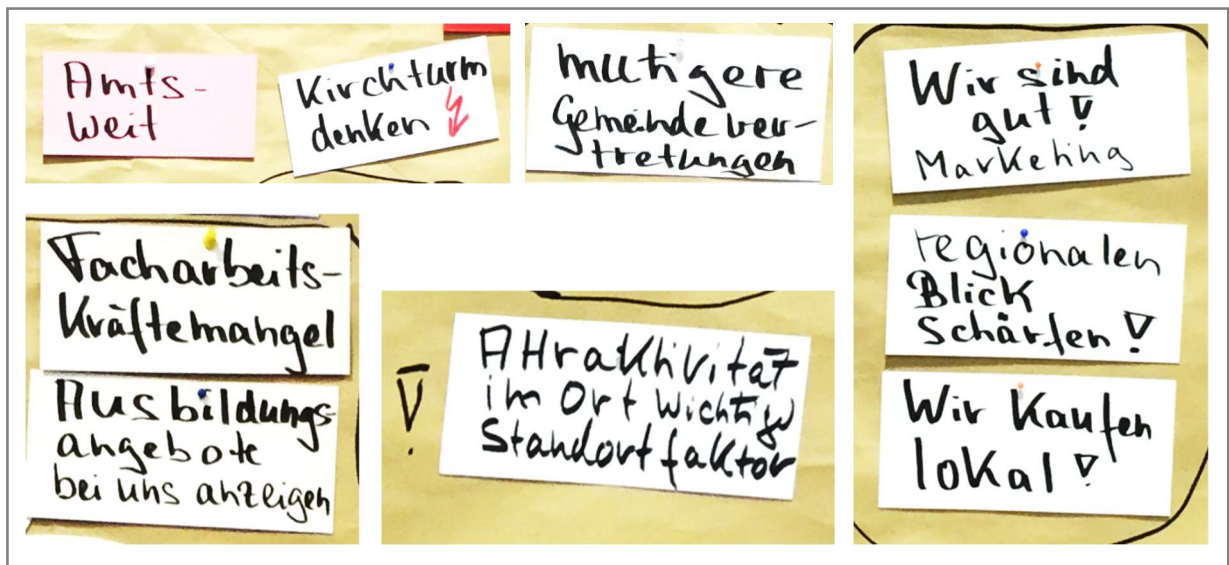 Amts-
weit
Kirchturm
denken
mutigere
Gemeindever-
tretungen
Wir sind
gut!
Marketing
Facharbeits-
kräftemangel
Ausbildungs-
angebote
bei uns anzeigen
!
Attraktivität
im Ort wichtig
Standortfaktor
regionalen
Blick
schärfen!
Wir kaufen
lokal!